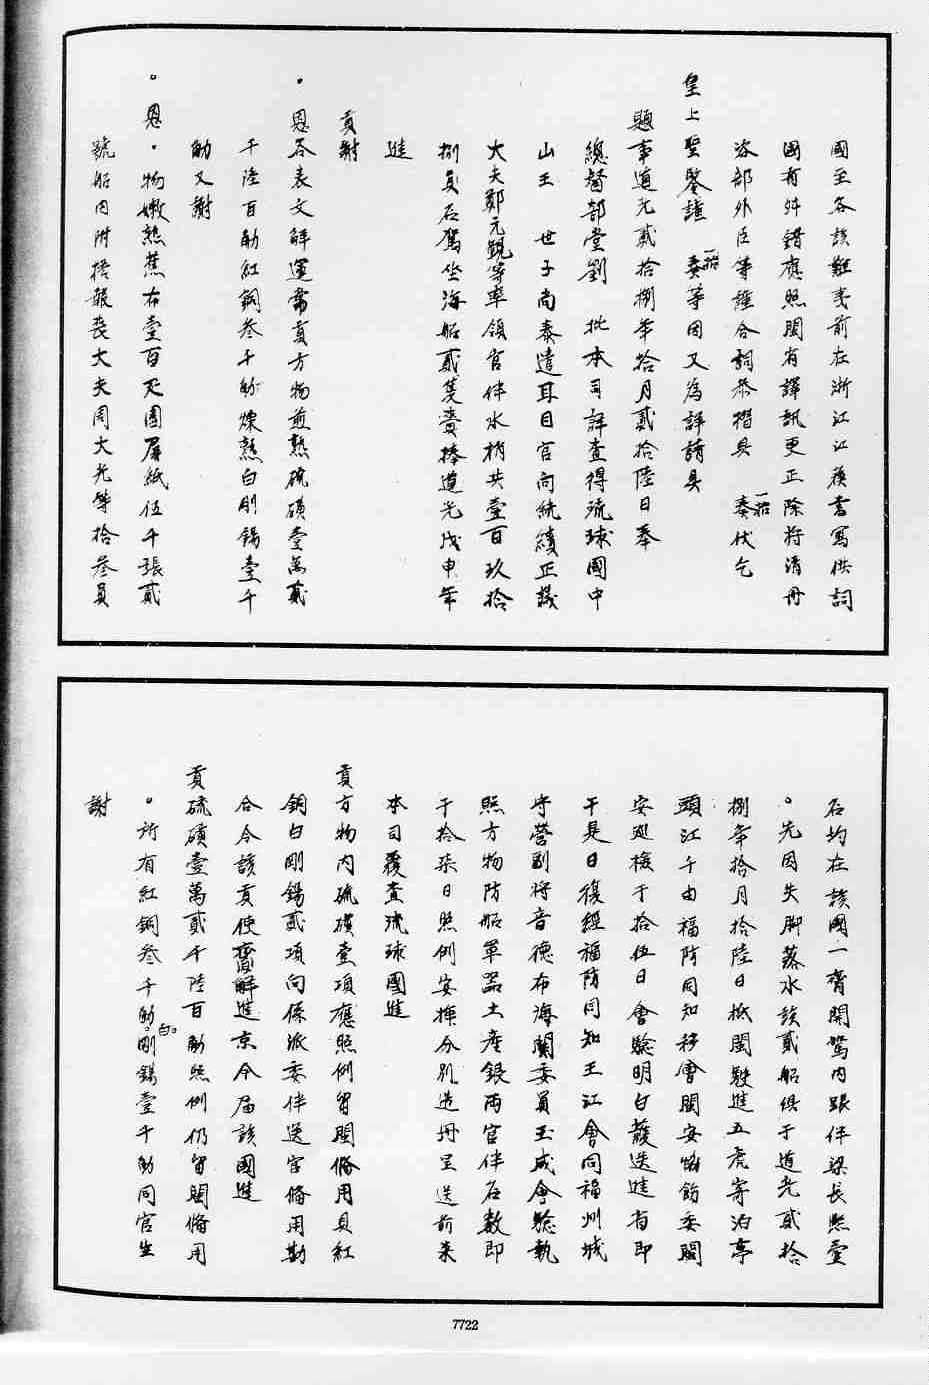 國至各該難夷前在浙江江蘇書寫供詞
國有舛錯應照閩省譯訊更正除將清冊
咨部外臣等謹合詞恭摺具 奏伏乞
一抬
皇上聖鑒謹 奏等因又為詳請具
一抬
題事道光貳拾捌年拾月貳拾陸日奉
總督部堂劉 批本司詳查得琉球國中
山王 世子尚泰遣耳目官向統績正議
大夫鄭元觀等率領官伴水梢共壹百玖拾
捌員名駕坐海船貳隻賫捧道光戊申年
進
貢謝
・恩各表文解運常貢方物煎熟硫磺壹萬貳
千陸百觔紅銅叁千觔煉熟白剛錫壹千
觔又謝
。恩・物嫩熟蕉布壹百疋圍屏紙伍千張貳
號船內附搭報喪大夫周大光等拾叁員
名均在該國一齊開駕內跟伴梁長煕壹
。先因失脚落水該貳船俱于道光貳拾
捌年拾月拾陸日抵閩駛進五虎寄泊亭
頭江千由福防同知移會閩安協飭委閩
安廵檢于拾伍日會驗明白護送進省即
于是日復經福防同知王江會同福州城
守營副將音德布海關委員玉成會驗執
照方物防船軍器土產銀両官伴名數即
于拾柒日照例安揷分別造冊呈送前來
本司覆查琉球國進
貢方物內硫磺壹項應照例留閩備用貝紅
銅白剛錫貳項向係派委伴送官備用勘
合令該貢使賫解進京今届該國進
貢硫磺壹萬貳千陸百觔照例仍留閩備用
。所有紅銅叁千觔。剛錫壹千觔同官生
白。
謝
7722